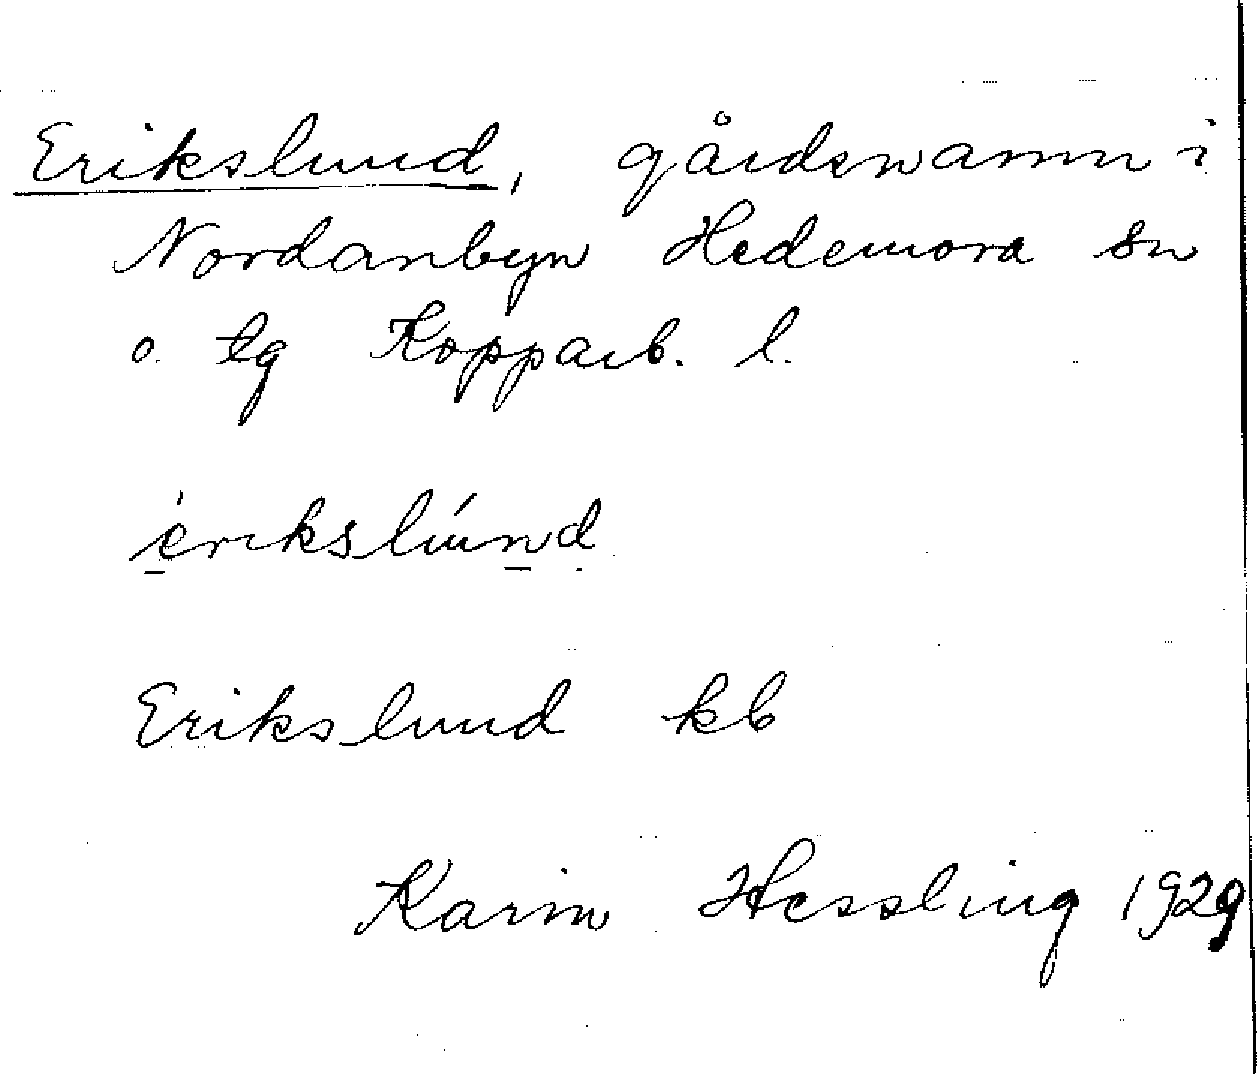 Erikslund, gårdsnamn i
Nordanbyn Hedemora sn
o. tg Kopparb. l.
erikslúnd
Erikslund kb
Karin Hessling 1929